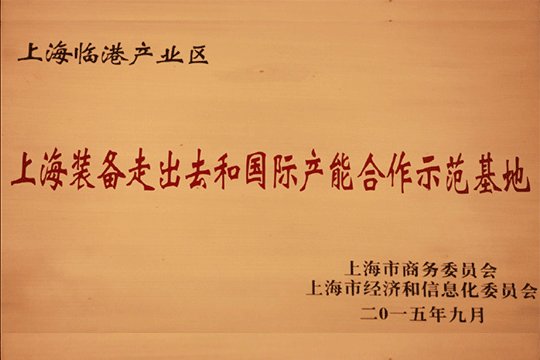 上海临港产业区
上海装备走出去和国际产能合作示范基地
上海市商务委员会
上海市经济和信息化委员会
二〇一五年九月